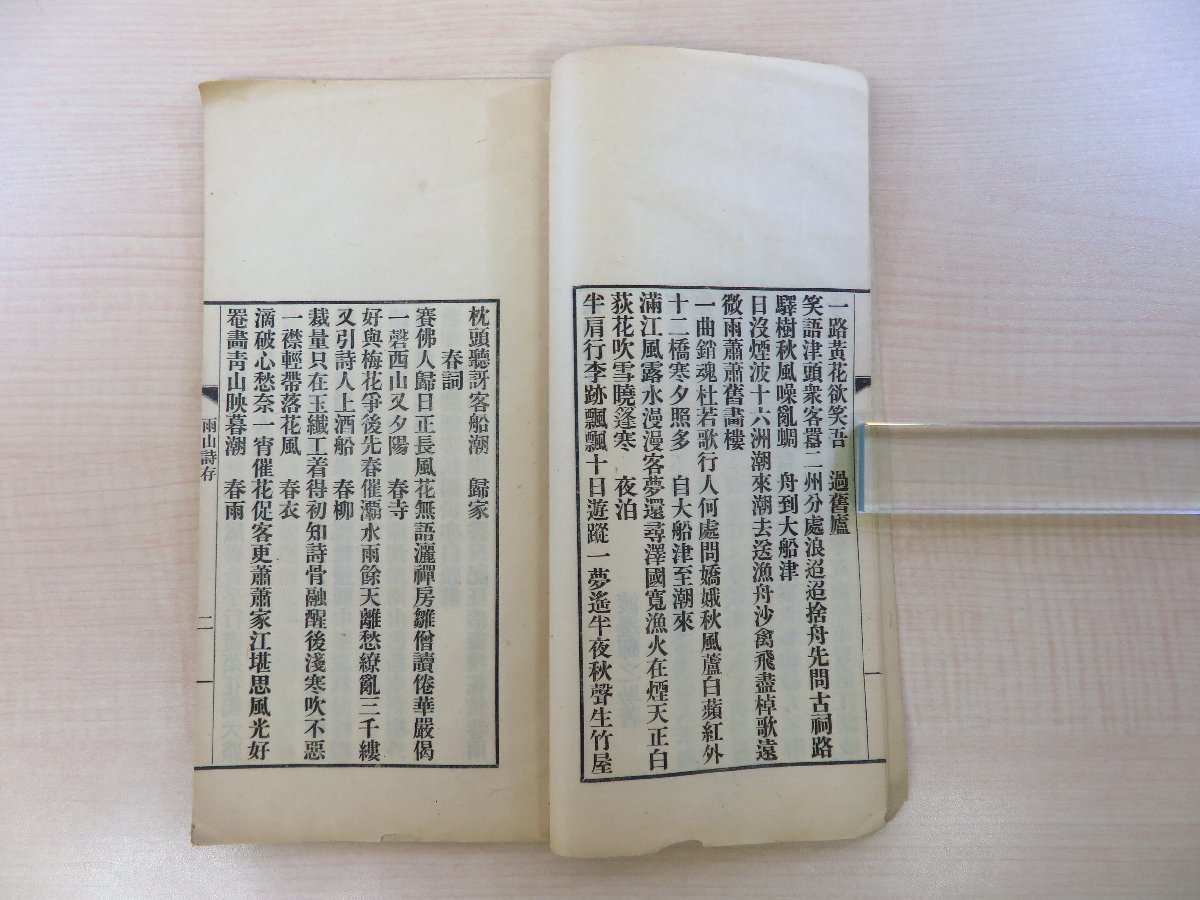 一路黃花欲笑吾　過舊廬
笑語津頭衆客囂二州分處浪迢迢捨舟先問古祠路
驛樹秋風噪亂蜩　舟到大船津
日沒煙波十六洲潮來潮去送漁舟沙禽飛盡棹歌遠
微雨蕭蕭舊畵樓
一曲銷魂杜若歌行人何處問嬌娥秋風蘆白蘋紅外
十二橋寒夕照多　自大船津至潮來
滿江風露水漫漫客夢還尋澤國寬漁火在煙天正白
荻花吹雪曉篷寒　夜泊
半肩行李跡飄飄十日遊蹤一夢遙半夜秋聲生竹屋
枕頭聽訝客船潮　歸家
春詞
賽佛人歸日正長風花無語灑禪房雛僧讀倦華嚴偈
一磬西山又夕陽　春寺
好與梅花爭後先春催灞水雨餘天離愁繚亂三千縷
又引詩人上酒船　春柳
裁量只在玉纖工着得初知詩骨融醒後淺寒吹不惡
一襟輕帶落花風　春衣
滴破心愁奈一宵催花促客更蕭蕭家江堪思風光好
罨畵靑山映暮潮　春雨
雨山詩存
二